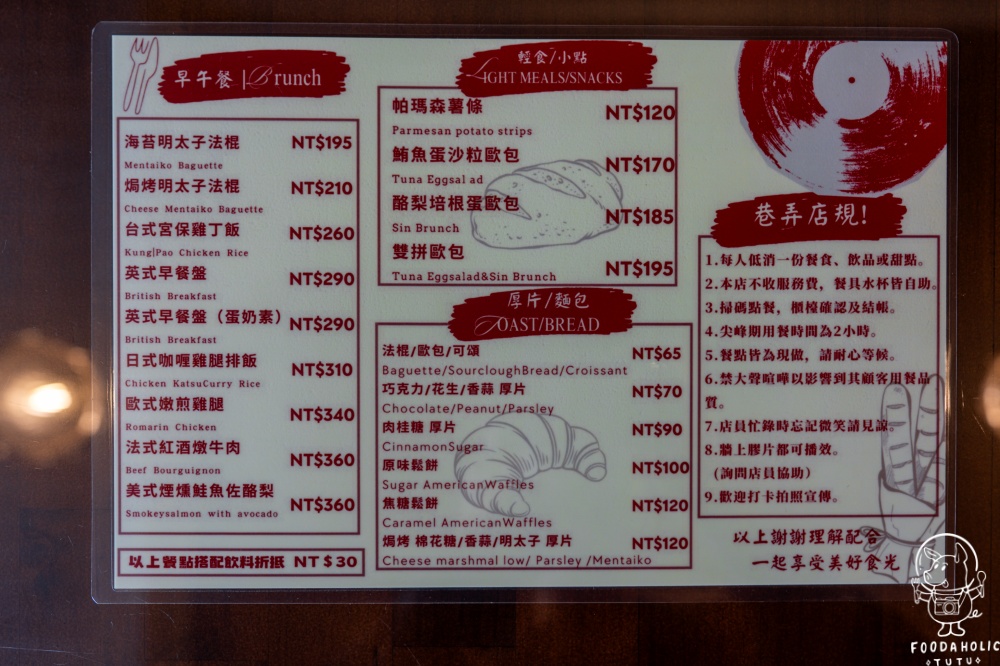 早午餐 | Brunch
海苔明太子法棍 NT$195
Mentaiko Baguette
焗烤明太子法棍 NT$210
Cheese Mentaiko Baguette
台式宮保雞丁飯 NT$260
Kung|Pao Chicken Rice
英式早餐盤 NT$290
British Breakfast
英式早餐盤（蛋奶素） NT$290
British Breakfast
日式咖喱雞腿排飯 NT$310
Chicken KatsuCurry Rice
歐式嫩煎雞腿 NT$340
Romarin Chicken
法式紅酒燉牛肉 NT$360
Beef Bourguignon
美式煙燻鮭魚佐酪梨 NT$360
Smokeysalmon with avocado
以上餐點搭配飲料折抵 NT$30
輕食/小點
LIGHT MEALS/SNACKS
帕瑪森薯條 NT$120
Parmesan potato strips
鮪魚蛋沙粒歐包 NT$170
Tuna Eggsal ad
酪梨培根蛋歐包 NT$185
Sin Brunch
雙拼歐包 NT$195
Tuna Eggsalad&Sin Brunch
厚片/麵包
TOAST/BREAD
法棍/歐包/可頌 NT$65
Baguette/SourcloughBread/Croissant
巧克力/花生/香蒜 厚片 NT$70
Chocolate/Peanut/Parsley
肉桂糖 厚片 NT$90
CinnamonSugar
原味鬆餅 NT$100
Sugar AmericanWaffles
焦糖鬆餅 NT$120
Caramel AmericanWaffles
焗烤 棉花糖/香蒜/明太子 厚片 NT$120
Cheese marshmal low/ Parsley /Mentaiko
巷弄店規!
1.每人低消一份餐食、飲品或甜點。
2.本店不收服務費，餐具水杯皆自助。
3.掃碼點餐，櫃檯確認及結帳。
4.尖峰期用餐時間為2小時。
5.餐點皆為現做，請耐心等候。
6.禁大聲喧嘩以影響到其顧客用餐品
質。
7.店員忙錄時忘記微笑請見諒。
8.牆上膠片都可播放。
（詢問店員協助）
9.歡迎打卡拍照宣傳。
以上謝謝理解配合
一起享受美好食光
FOODAHOLIC
TUTU